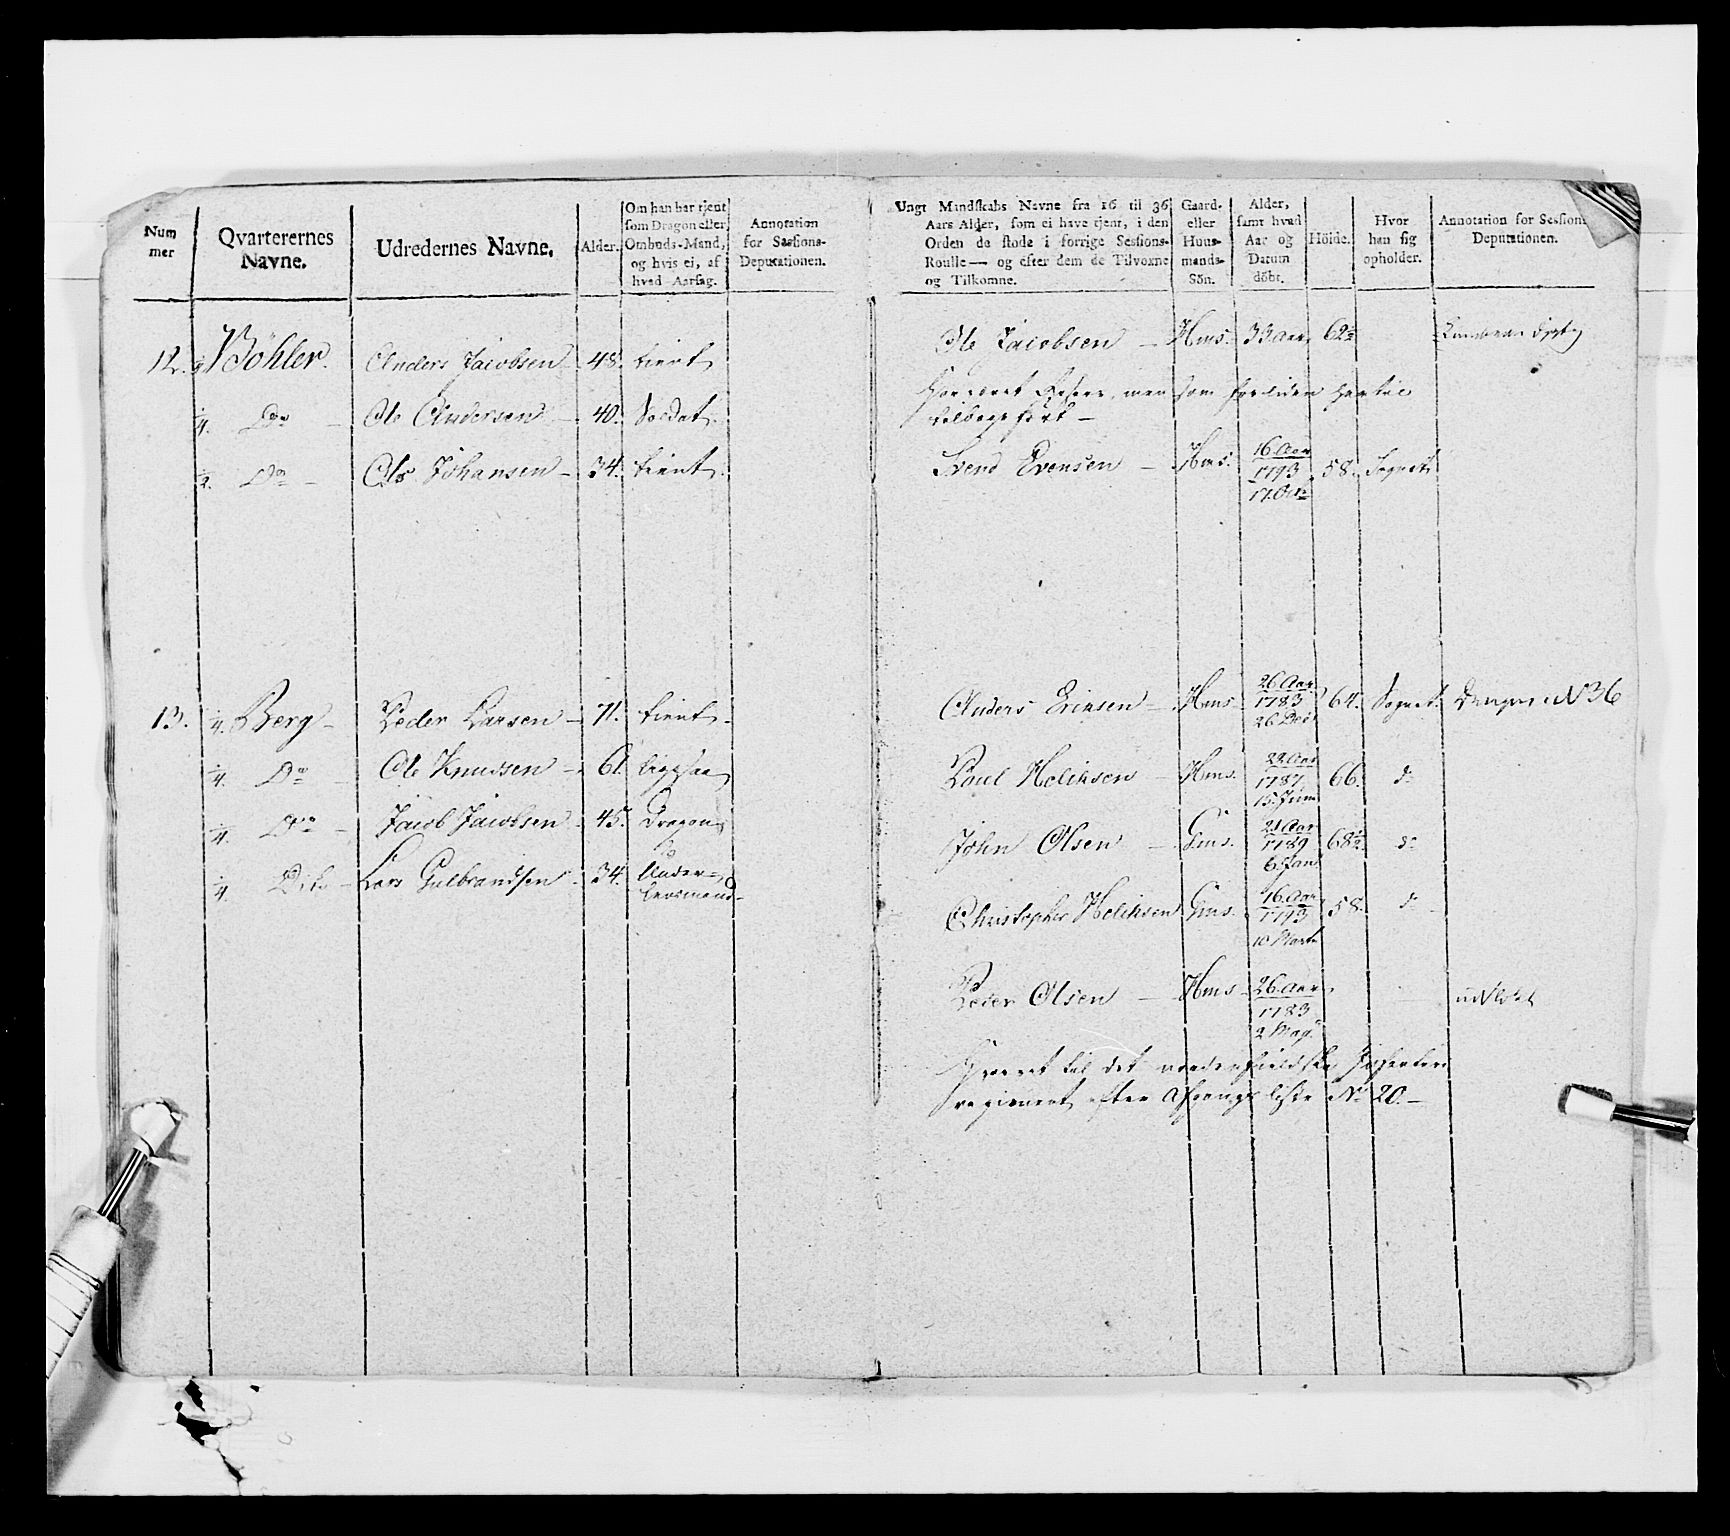 Num
mer
Qvarterernes
Navne.
Udredernes Navne.
Alder.
Om han har tjent
som Dragon eller
Ombuds-Mand,
og hvis ei, af
hvad Aarsag.
Annotation
for Sessions-
Deputationen.
Ungt Mandskabs Navne fra 16 til 36
Aars Alder, som ei have tjent, i den
Orden de stode i forrige Sessions-
Roulle — og efter dem de Tilvoxne
og Tilkomne.
Gaard-
eller
Huus-
mands-
Sön.
Alder,
samt hvad
Aar og
Datum
döbt.
Höide.
Hvor
han sig
opholder.
Annotation for Sessions-
Deputationen.
12. Böhler. Anders Jacobsen 48. tient
1/4. Do Ole Andersen 40. Soldat
1/2. Do Ole Johansen 34. tient
Ole Jacobsen Hms. 33 Aar 62 1/2
tilbage ført
Svend Evensen Hms. 16 Aar 1793 17. Octr 58. Sognet
13. 1/4. Berg Peder Larsen 71. tient
1/4. Do Ole Knudsen 61.
1/4. Do Jacob Jacobsen 45. Dragon
1/4. Dito Lars Gulbrandsen 34. Under-
lensmand
Anders Ericsen Hms 26 Aar 1783 26 Dec 64. Sognet Dragon N 36
Poul Melchsen Hms. 22 Aar 1787 15. Juni 66. do
John Olsen Gms. 21 Aar 1789 6 Jan 68 1/2 do
Christopher Melchsen Gms. 16 Aar 1793 10 Marti 58. do
Peder Olsen Hms 26 Aar 1783 2 May udslettet
til det nordenfieldske Infanterie
regiment efter Afgangs liste No 20.